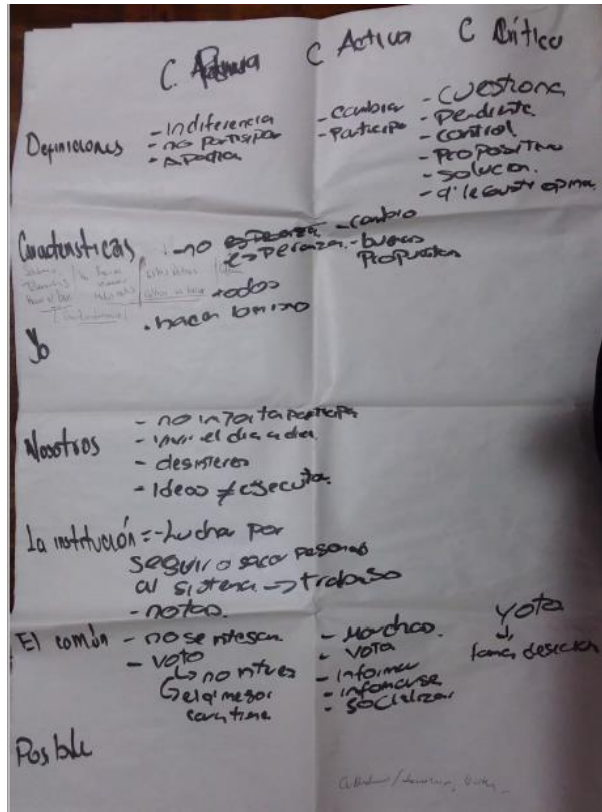 C. Pasiva C Activa C Crítico
Definiciones
- Indiferencia
- no participar
- Apatica
- cambiar
- Participa
- cuestiona
- Pendiente
- control
- Propositivo
- solucion.
- q' le guste opinar
Características
- no esperanza
esperanza.
- cambio
- buscar
Propuestas
todos
hacen lo mismo
Yo
Nosotros
- no importa participa
- vivir el dia a dia
- desinteres
- Ideas ≠ ejecuta.
La institución = - Lucha por
seguir o sacar personas
al sistema → trabajo
- notas.
El común
- no se interesan
- voto
↳ no interes
el q' mejor
cara tiene
- Marchas.
- VOTA
- informar
- informarse
- socializar
Vota
↓
tomar desicion
Posible